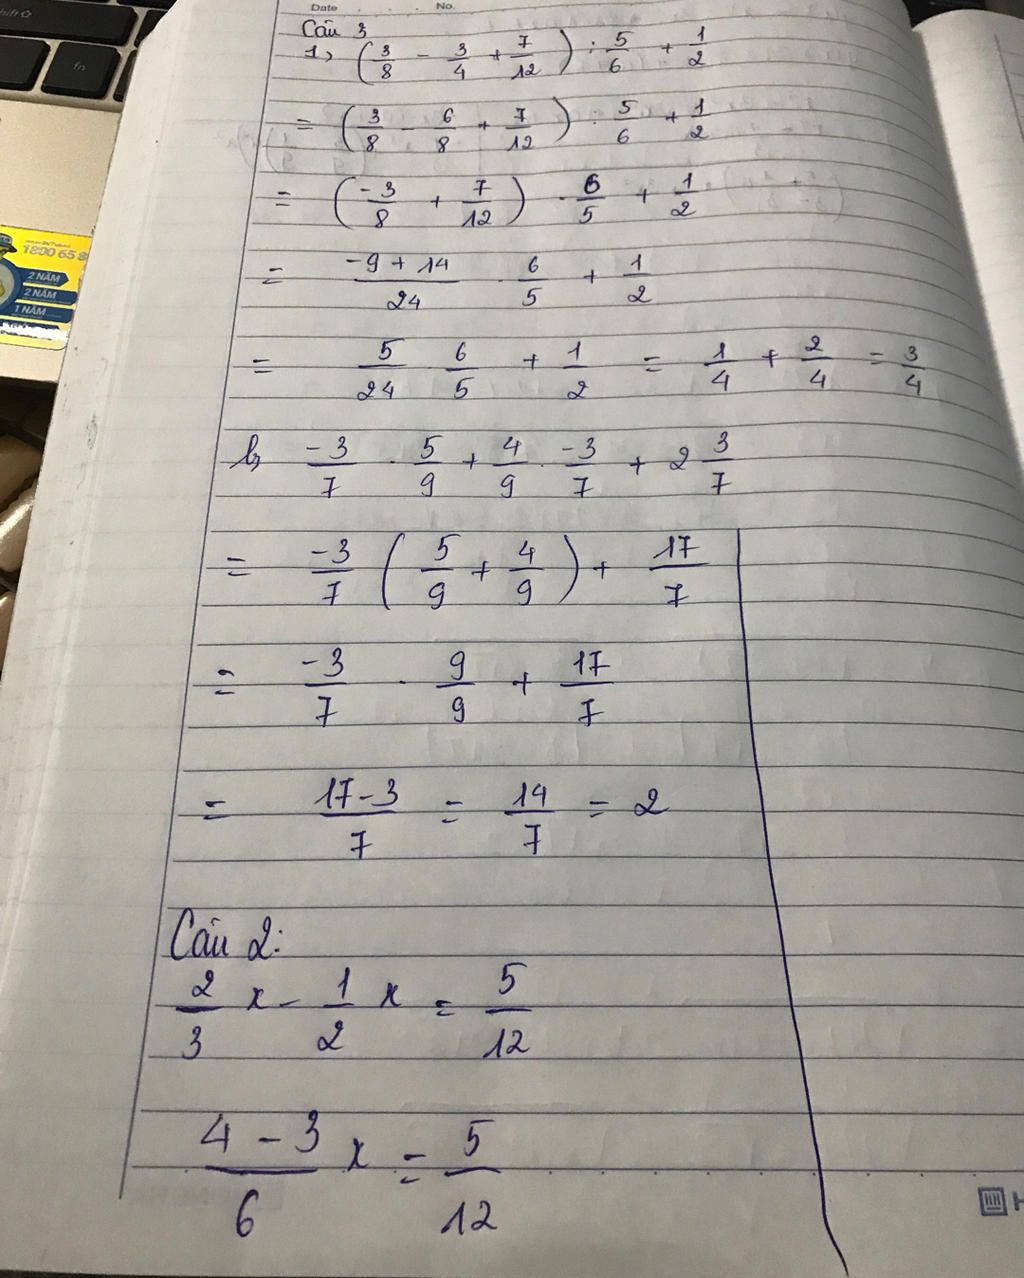 shift
fn
Date . . . . No.
Câu 3
1, (3/8 - 3/4 + 7/12) : 5/6 + 1/2
= (3/8 - 6/8 + 7/12) : 5/6 + 1/2
= (-3/8 + 7/12) . 6/5 + 1/2
= (-9 + 14)/24 . 6/5 + 1/2
= 5/24 6/5 + 1/2 = 1/4 + 2/4 = 3/4
b, -3/7 . 5/9 + 4/9 . -3/7 + 2 3/7
= -3/7 (5/9 + 4/9) + 17/7
= -3/7 . 9/9 + 17/7
= (17-3)/7 = 14/7 = 2
Câu 2:
2/3 x - 1/2 x = 5/12
(4 - 3)/6 x = 5/12
1800 65
2 NĂM
2 NĂM
1 NĂM
H